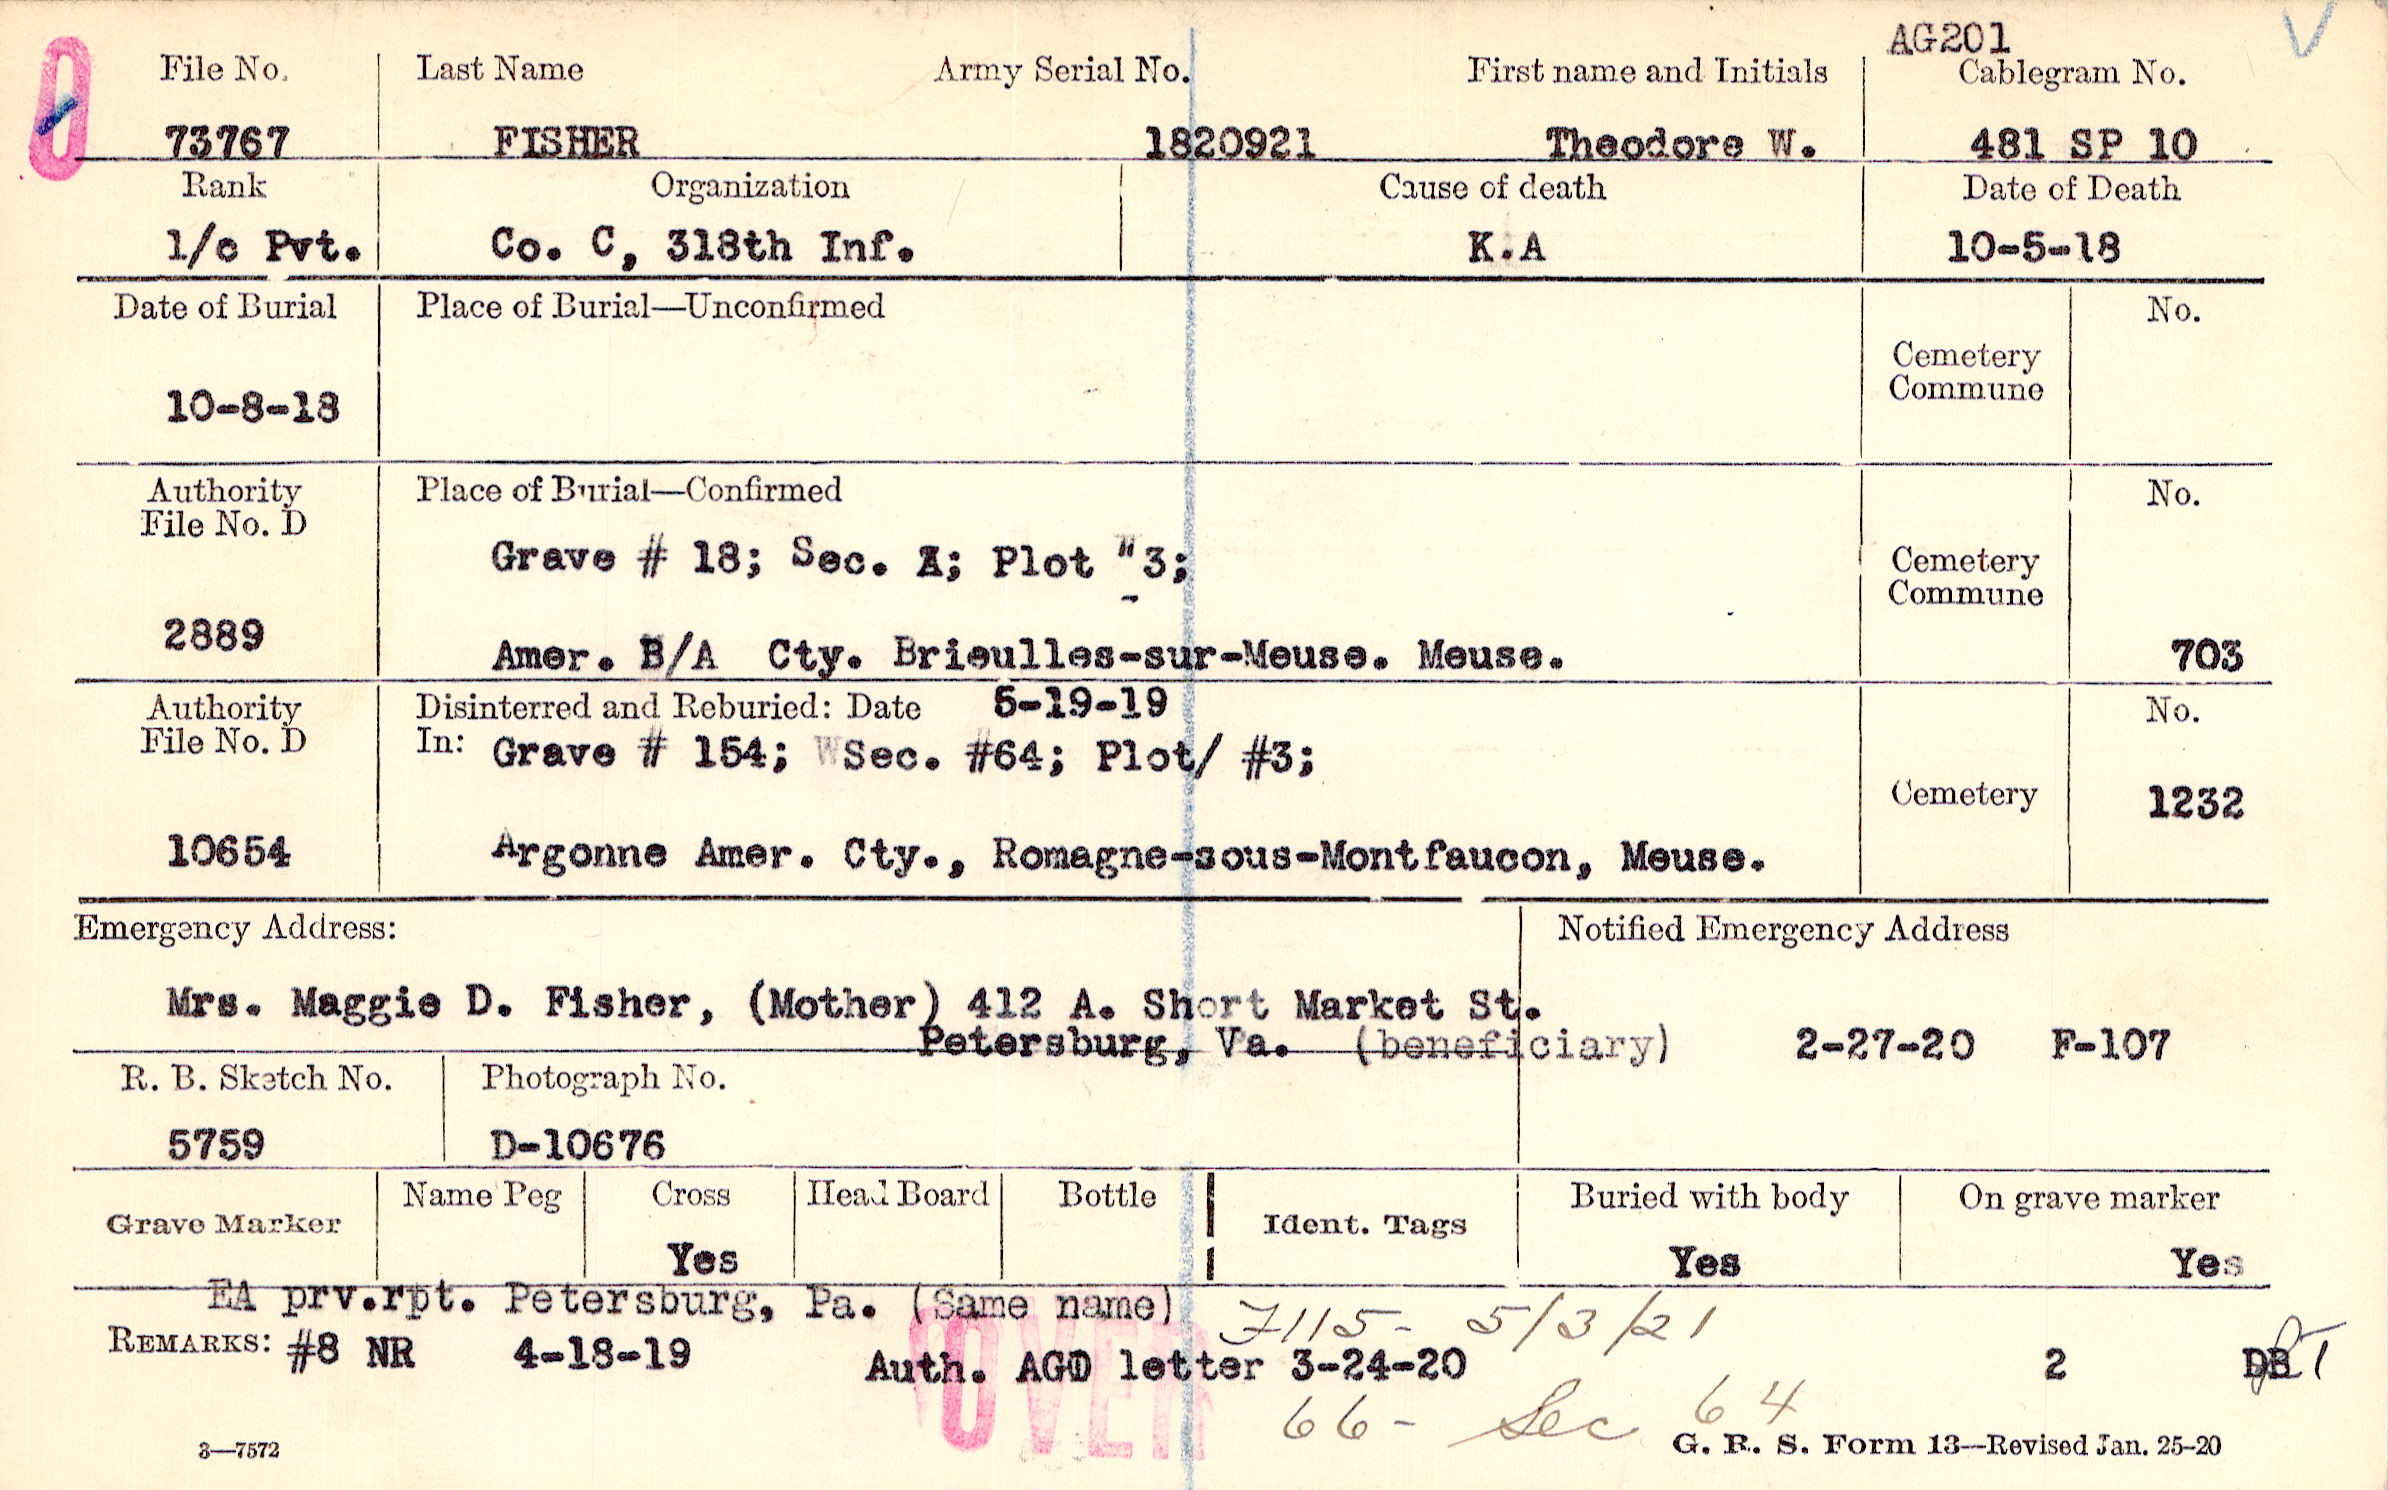 AG201
File No. Last Name Army Serial No. First name and Initials Cablegram No.
73767 FISHER 1820921 Theodore W. 481 SP 10
Rank Organization Cause of death Date of Death
1/c Pvt. Co. C, 318th Inf. K.A 10-5-18
Date of Burial Place of Burial—Unconfirmed No.
Cemetery
Commune
10-8-18
Authority Place of Burial—Confirmed No.
File No. D
Grave # 18; Sec. A; Plot "3;
Cemetery
Commune
2889
Amer. B/A Cty. Brieulles-sur-Meuse. Meuse. 703
Authority Disinterred and Reburied: Date 5-19-19 No.
File No. D In: Grave # 154; Sec. #64; Plot/ #3;
Cemetery 1232
10654 Argonne Amer. Cty., Romagne-sous-Montfaucon, Meuse.
Emergency Address: Notified Emergency Address
Mrs. Maggie D. Fisher, (Mother) 412 A. Short Market St.
Petersburg, Va. (beneficiary) 2-27-20 F-107
R. B. Sketch No. Photograph No.
5759 D-10676
Grave Marker Name Peg Cross Head Board Bottle Ident. Tags Buried with body On grave marker
Yes Yes Yes
EA prv.rpt. Petersburg, Pa. (Same name) 7115- 5/3/21
REMARKS: #8 NR 4-18-19 Auth. AGO letter 3-24-20 2
OVER
66- Sec 64
3—7572 G. R. S. Form 13—Revised Jan. 25-20